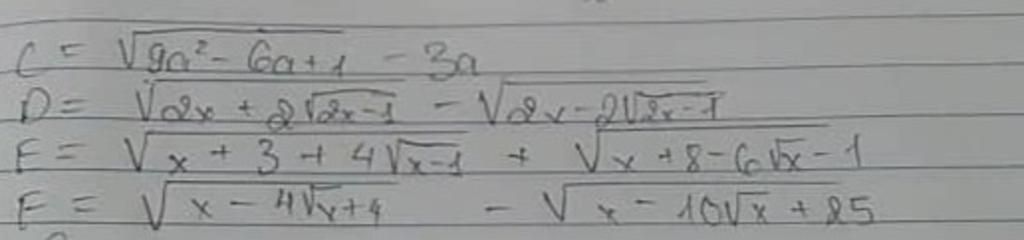 C = √(9a² - 6a + 1) - 3a
D = √(2x + 2√(2x-1)) - √(2x - 2√(2x-1))
E = √(x + 3 + 4√(x-1)) + √(x + 8 - 6√x - 1)
F = √(x - 4√x + 4) - √(x - 10√x + 25)